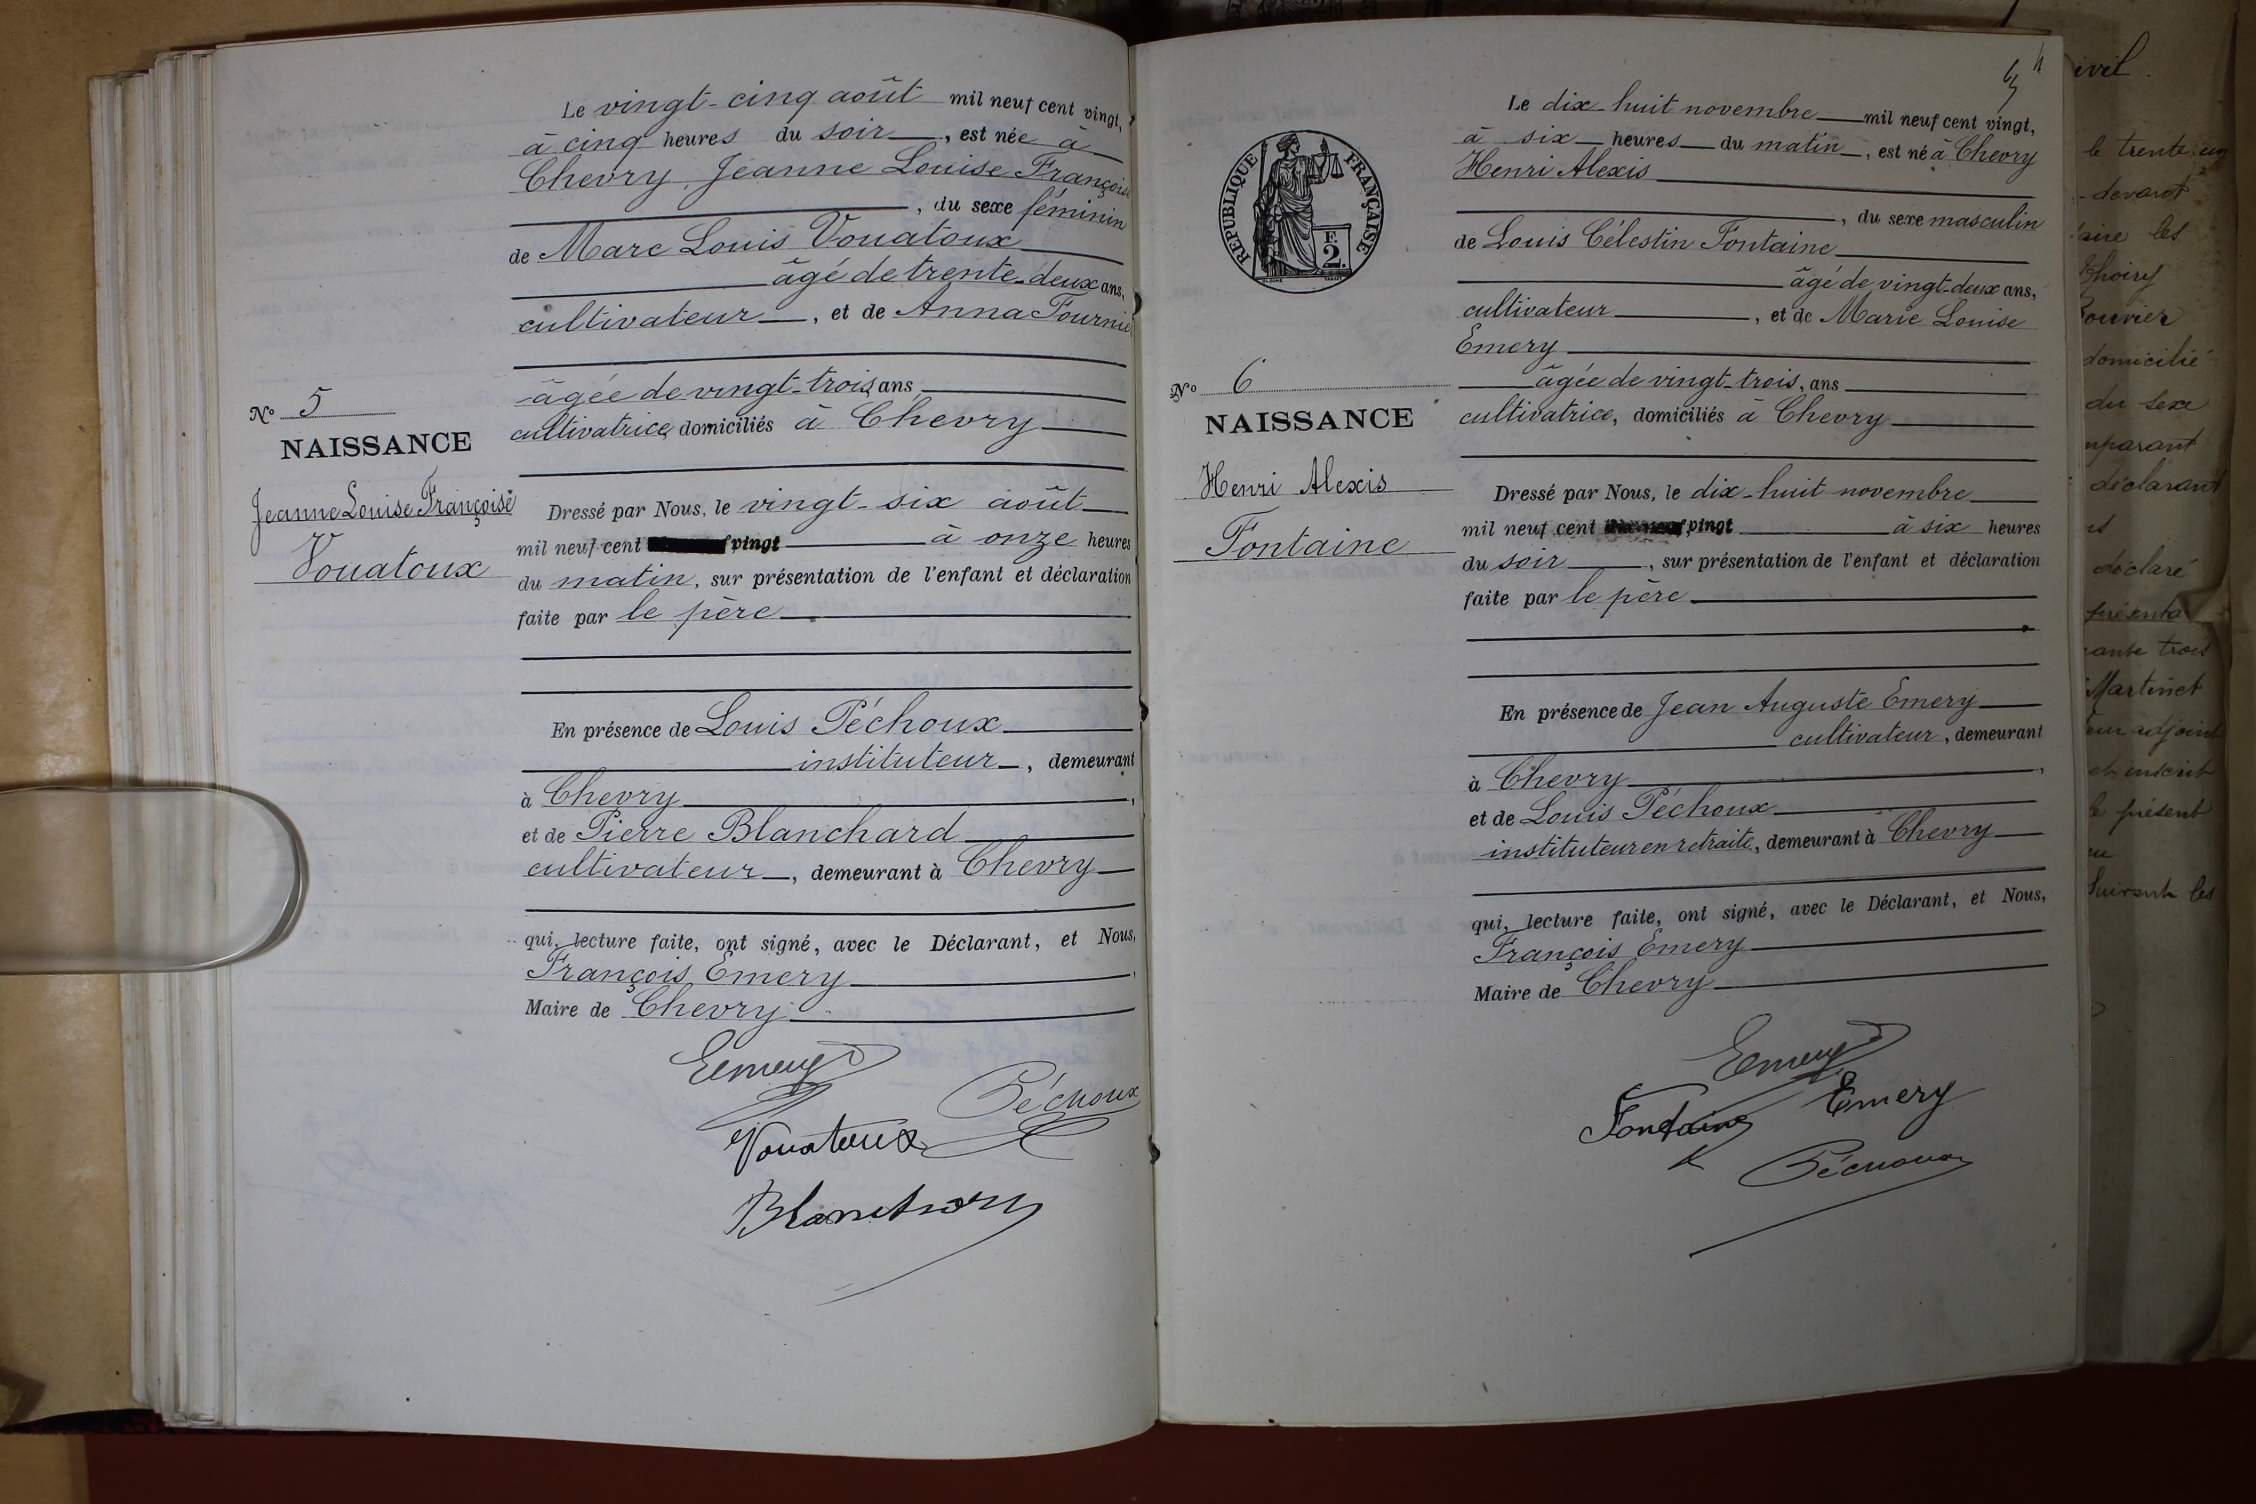 N° 5
NAISSANCE
Jeanne Louise Françoise
Vouatoux
Le vingt-cinq août mil neuf cent vingt,
à cinq heures du soir, est née à
Chevry, Jeanne Louise Françoise
, du sexe féminin
de Marc Louis Vouatoux
âgé de trente-deux ans,
cultivateur, et de Anna Fournier
âgée de vingt-trois, ans
cultivatrice, domiciliés à Chevry
Dressé par Nous, le vingt-six août
mil neuf cent vingt à onze heures
du matin, sur présentation de l'enfant et déclaration
faite par le père
En présence de Louis Péchoux
instituteur, demeurant
à Chevry,
et de Pierre Blanchard
cultivateur, demeurant à Chevry
qui, lecture faite, ont signé, avec le Déclarant, et Nous,
François Emery,
Maire de Chevry
Emery
Péchoux
Vouatoux
Blanchard
4
REPUBLIQUE FRANÇAISE
F.
2.
N° 6
NAISSANCE
Henri Alexis
Fontaine
Le dix-huit novembre mil neuf cent vingt,
à six heures du matin, est né à Chevry
Henri Alexis
, du sexe masculin
de Louis Célestin Fontaine
âgé de vingt-deux ans,
cultivateur, et de Marie Louise
Emery
âgée de vingt-trois, ans
cultivatrice, domiciliés à Chevry
Dressé par Nous, le dix-huit novembre
mil neuf cent vingt à six heures
du soir, sur présentation de l'enfant et déclaration
faite par le père
En présence de Jean Auguste Emery
cultivateur, demeurant
à Chevry,
et de Louis Péchoux
instituteur en retraite, demeurant à Chevry
qui, lecture faite, ont signé, avec le Déclarant, et Nous,
François Emery
Maire de Chevry
Emery
Fontaine Emery
Péchoux
ivil.
le trente
devant
aire les
Thoiry
Bouvier
domicilié
du sexe
mparant
déclarant
déclaré
présenta
ante trois
Martinet
adjoint
et inscrit
le présent
Suivent les